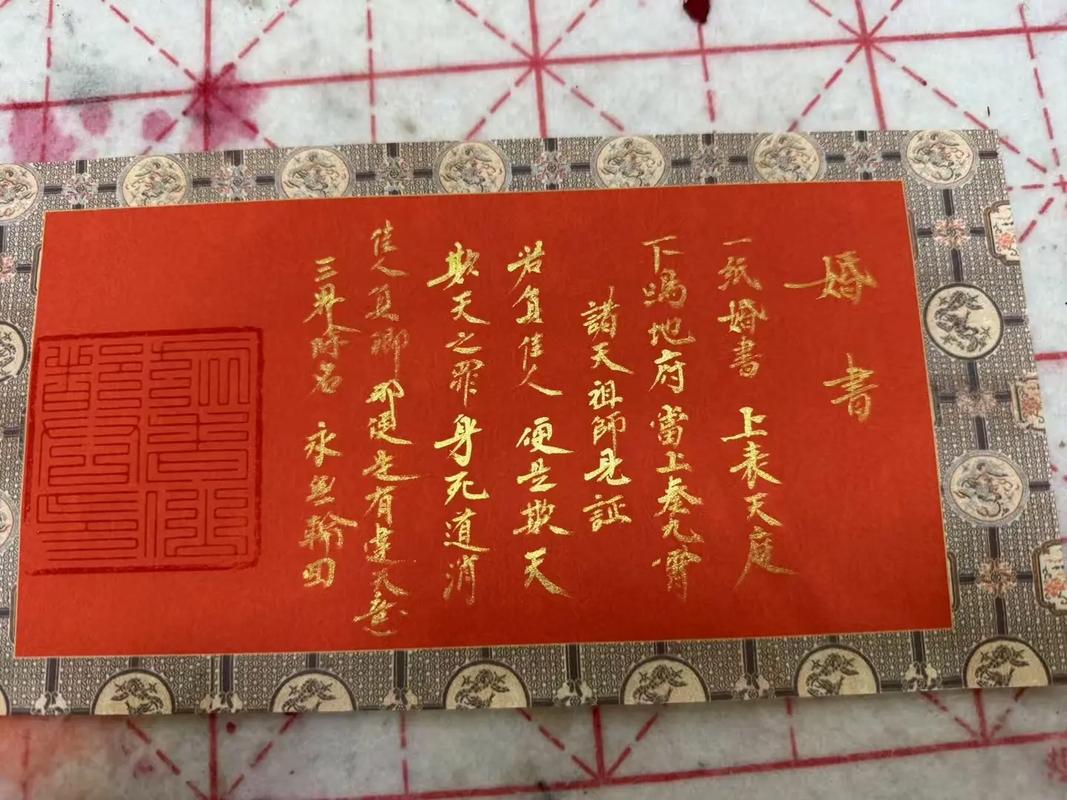 婚書
一紙婚書 上表天庭
下鳴地府 當上奏九霄
諸天祖師見証
若負佳人 便是欺天
欺天之罪 身死道消
佳人負卿 那便是有違天意
三界除名 永無輪回